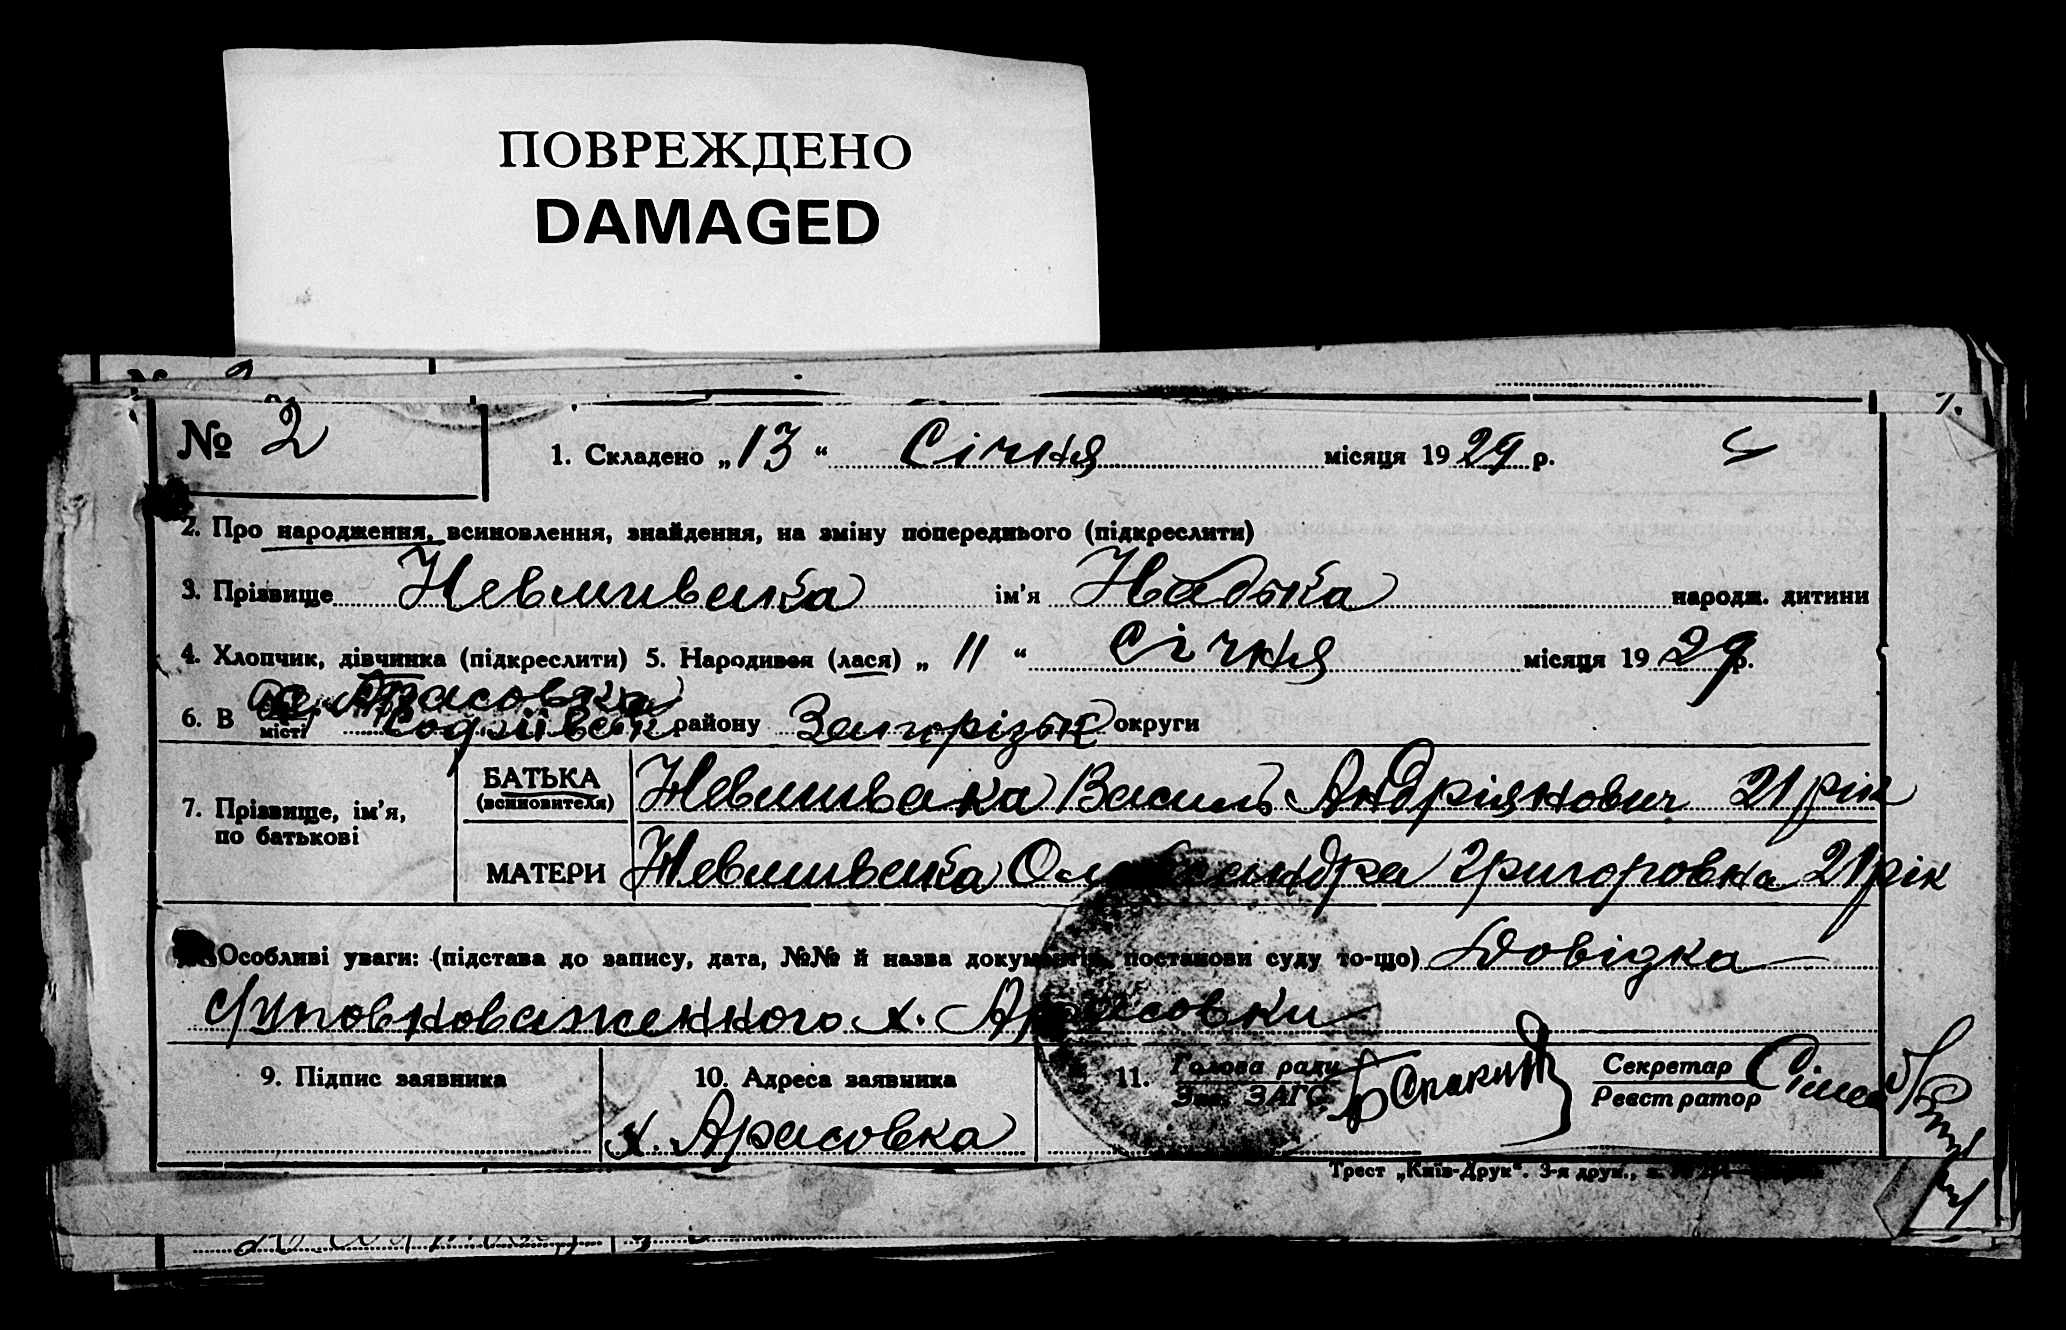 ПОВРЕЖДЕНО
DAMAGED
№ 2
1. Складено „13“ Січня місяця 1929 р.
2. Про народження, всиновлення, знайдення, на зміну попереднього (підкреслити)
3. Прізвище Невшивека ім'я Надька народж. дитини
4. Хлопчик, дівчинка (підкреслити) 5. Народився (лася) „11“ Січня місяця 1929 р.
х. Арасовка
6. В місті району Запорізьк округи
7. Прізвище, ім'я, по батькові
БАТЬКА (всиновителя) Василь Андріянович 21 рік
МАТЕРИ Олександра Григоровна 21 рік
Особливі уваги: (підстава до запису, дата, №№ й назва документів, постанови суду то-що) Довідка
Уповноваженного х. Арасовки
9. Підпис заявника
10. Адреса заявника
х. Арасовка
11. Голова ради
Зав. ЗАГС
Секретар
Реєстратор
Трест „Київ-Друк“. 3-я друк.,